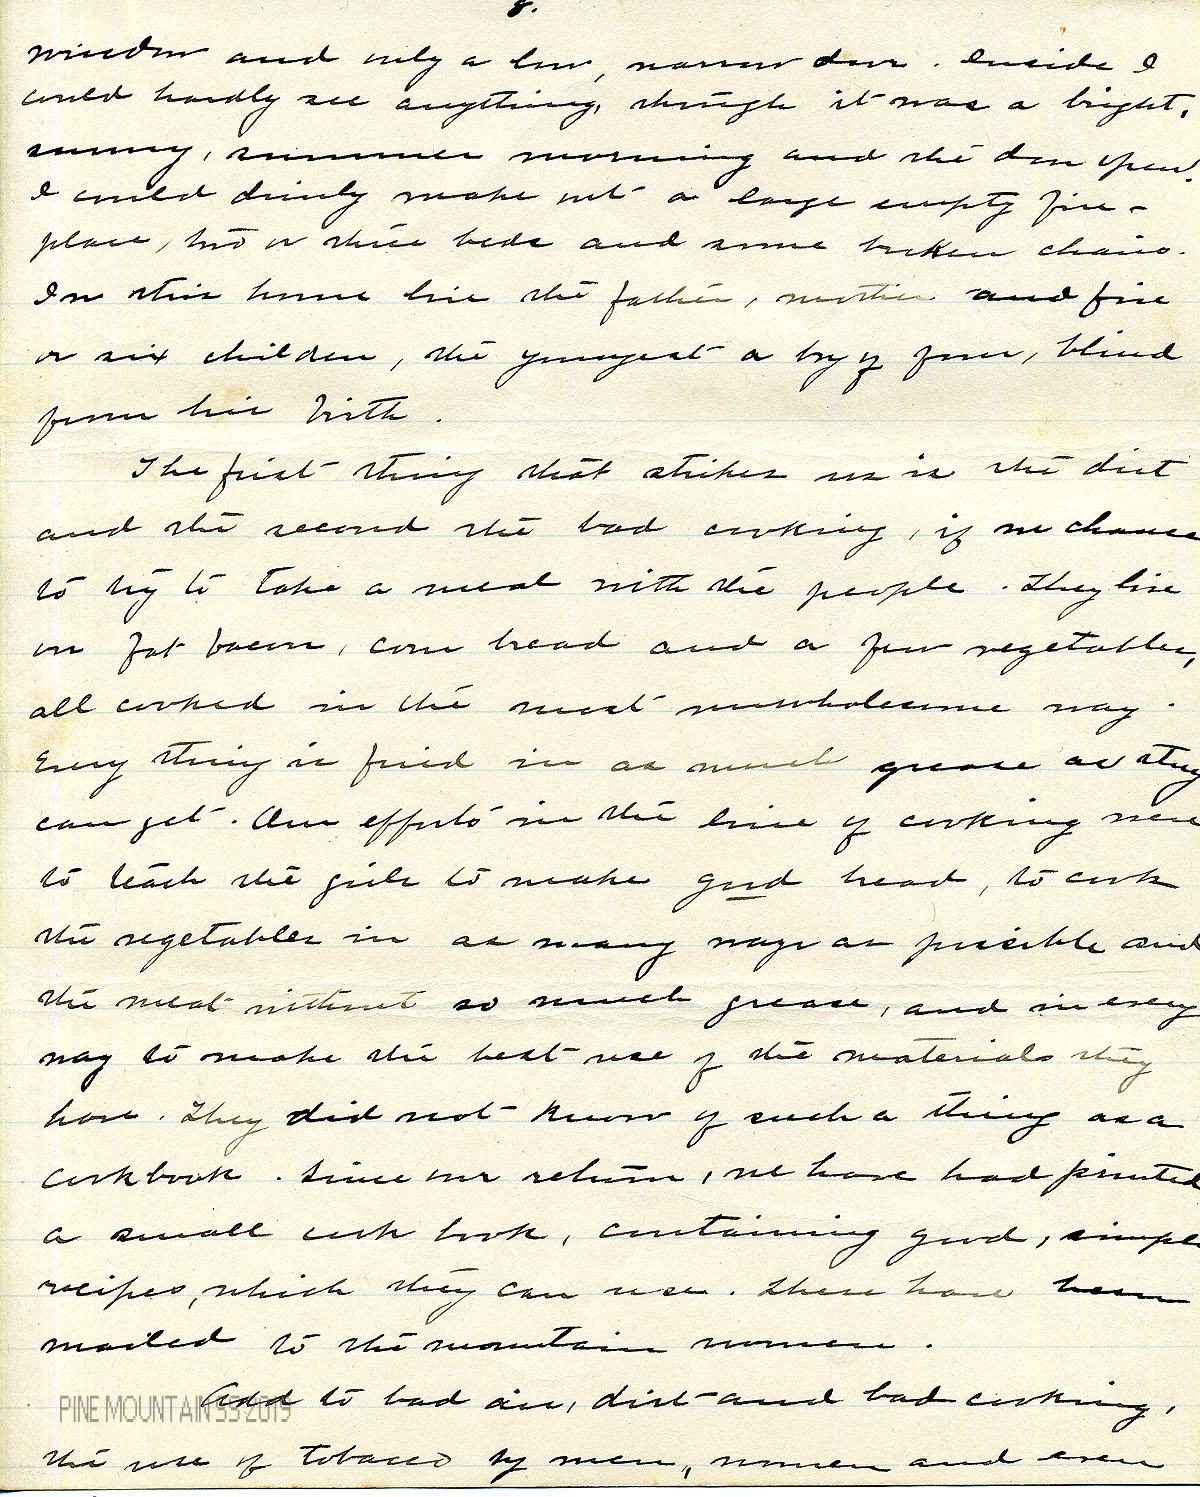 8.
window and only a low, narrow door. Inside I
could hardly see anything, though it was a bright,
sunny, summer morning and the door open.
I could dimly make out a large empty fire-
place, two or three beds and some broken chairs.
In this home live the father, mother and five
or six children, the youngest a boy of four, blind
from his birth.
The first thing that strikes us is the dirt
and the second the bad cooking, if we chance
to try to take a meal with the people. They live
on fat bacon, corn bread and a few vegetables,
all cooked in the most unwholesome way.
Every thing is fried in as much grease as they
can get. Our efforts in the line of cooking were
to teach the girls to make good bread, to cook
the vegetables in as many ways as possible and
the meat without so much grease, and in every
way to make the best use of the materials they
have. They did not know of such a thing as a
cookbook. Since our return, we have had printed
a small cook book, containing good, simple
recipes, which they can use. These have been
mailed to the mountain women.
Add to bad air, dirt and bad cooking,
the use of tobacco by men, women and even
PINE MOUNTAIN SS 2019